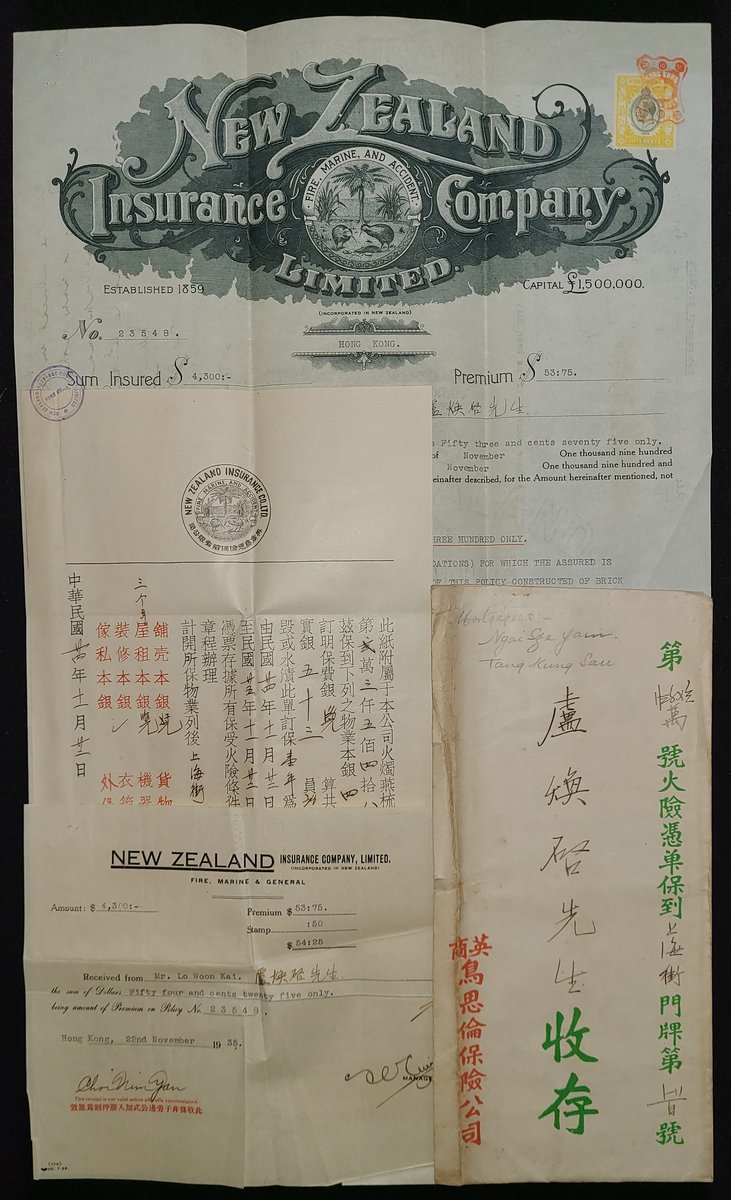 NEW ZEALAND
INSURANCE COMPANY
LIMITED.
FIRE, MARINE, AND ACCIDENT.
ESTABLISHED 1859
CAPITAL £1,500,000.
(INCORPORATED IN NEW ZEALAND)
No. 23548.
HONG KONG.
Sum Insured $ 4,300:-
Premium $ 53:75.
盧煥啓先生
Fifty three and cents seventy five only.
of November One thousand nine hundred
November One thousand nine hundred and
hereinafter described, for the Amount hereinafter mentioned, not
THREE HUNDRED ONLY.
FOR WHICH THE ASSURED IS
OF THIS POLICY CONSTRUCTED OF BRICK
NEW ZEALAND INSURANCE CO. LTD.
FIRE, MARINE, AND ACCIDENT
此紙附屬于本公司火燭燕梳
第弍萬三仟五佰四拾八
茲保到下列之物業本銀四
訂明保費銀
算共
實銀五十三員
毀或水漬此單訂保壹年為
由民國廿四年十一月廿二日
至民國廿五年十一月廿二日
憑票存據所有保受火險條件
章程辦理
計開所保物業列後上海街
舖壳本銀
貨物
屋租本銀
機器
裝修本銀
傢私本銀
中華民國廿四年十一月廿二日
NEW ZEALAND INSURANCE COMPANY, LIMITED.
(INCORPORATED IN NEW ZEALAND)
FIRE, MARINE & GENERAL
Amount: $ 4,300:-
Premium $ 53:75.
Stamp :50
$ 54:25
Received from Mr. Lo Woon Kai. 盧煥啓先生
the sum of Dollars Fifty four and cents twenty five only.
being amount of Premium on Policy No. 23548.
Hong Kong, 22nd November 1935.
Choi Nim Yau
MANAGE
This receipt is not valid unless officially countersigned.
Mortgagees:-
Ngai Sze Yam.
Tang Kung Sau
第
萬
號火險憑单保到上海街門牌第
號
盧煥啓先生收存
英商鳥思倫保險公司